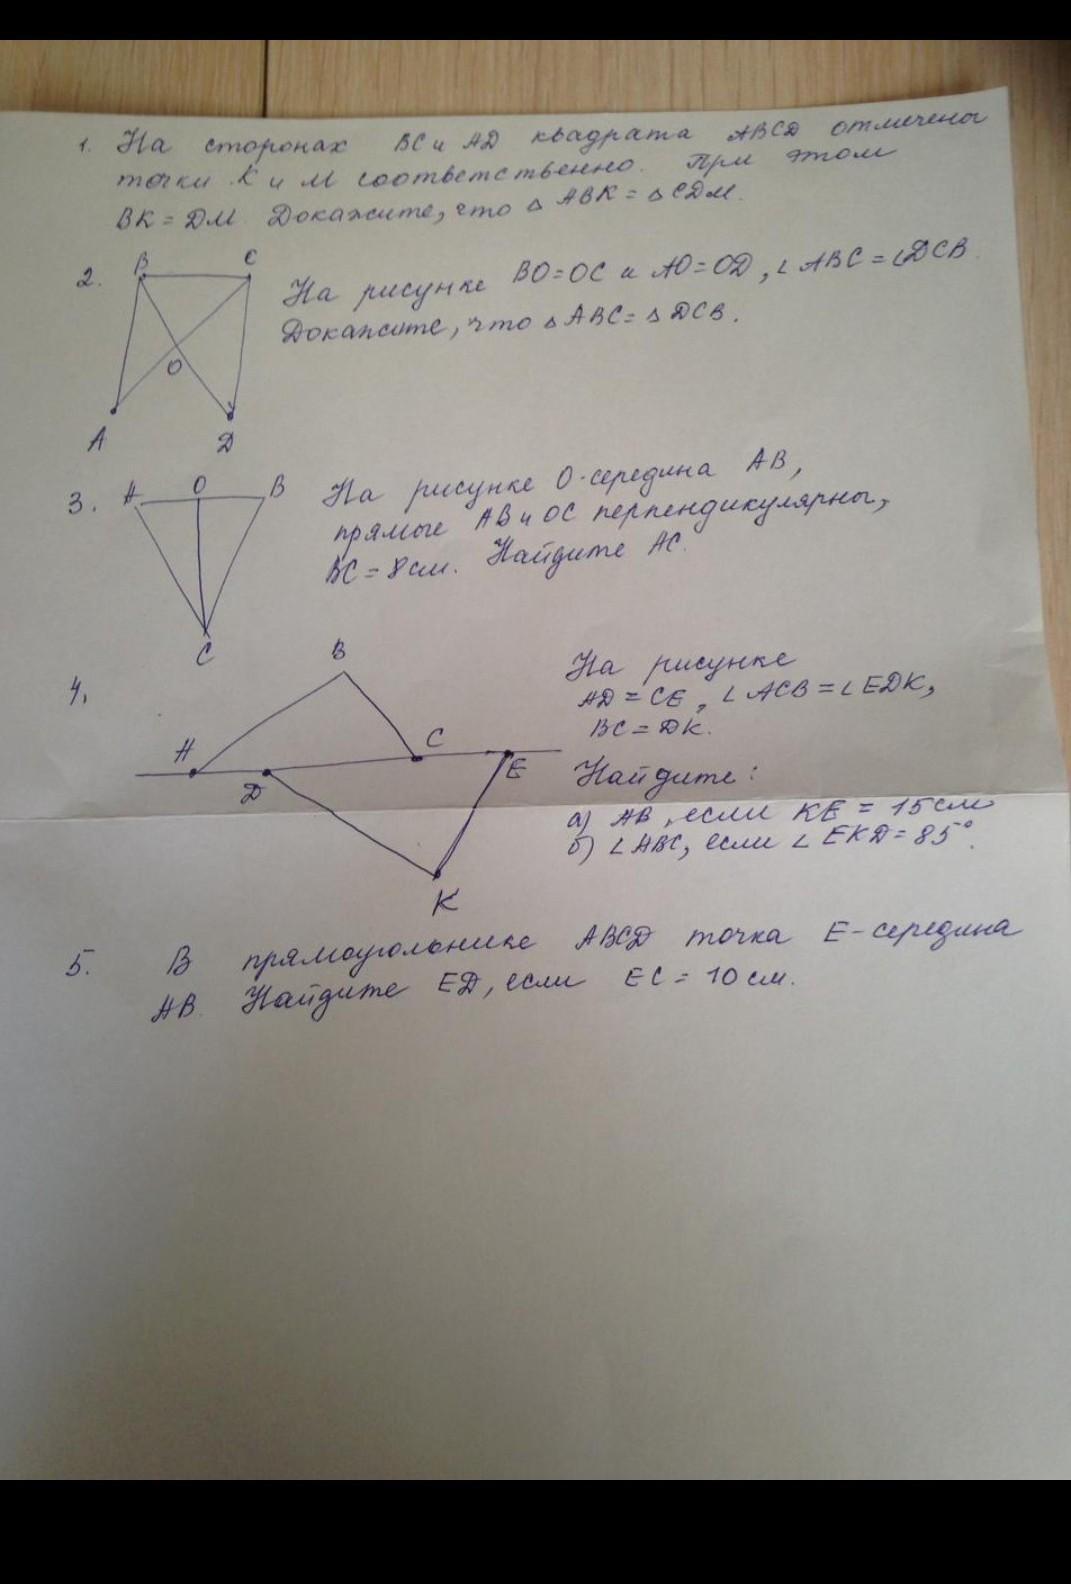 1. На сторонах ВС и AD квадрата ABCD отмечены
точки К и М соответственно. При этом
BK = DM. Докажите, что △ ABK = △ CDM.
2. B C На рисунке BO=OC и AO=OD, ∠ ABC = ∠DCB.
Докажите, что △ ABC = △ DCB.
O
A D
3. A O B На рисунке O-середина AB,
прямые AB и OC перпендикулярны,
BC = 8 см. Найдите AC.
C
4. B На рисунке
AD = CE, ∠ ACB = ∠ EDK,
BC = DK.
A C
D E Найдите:
а) AB, если KE = 15 см
б) ∠ ABC, если ∠ EKD = 85°.
K
5. В прямоугольнике ABCD точка E-середина
AB. Найдите ED, если EC = 10 см.